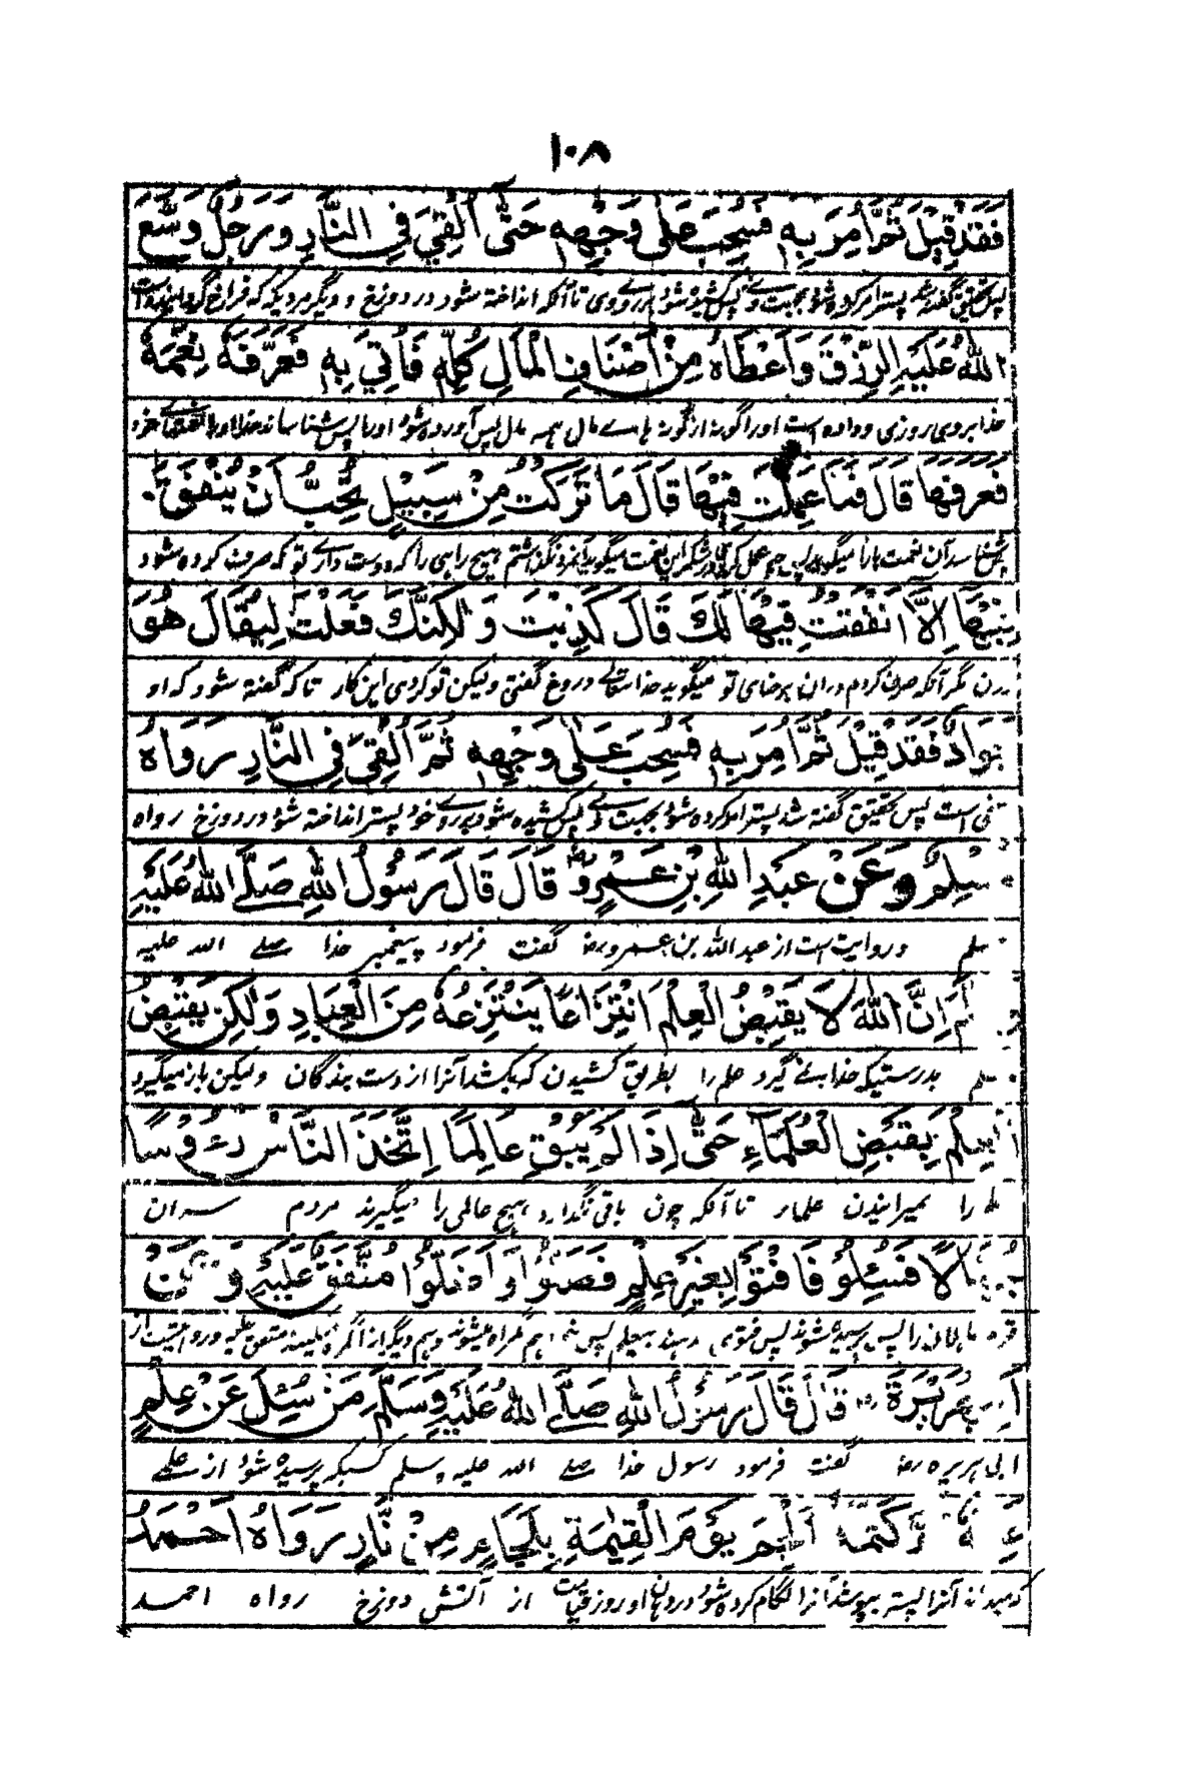 ۱۰۸
فَقَدْ قِيْلَ ثُمَّ أُمِرَ بِهٖ فَسُحِبَ عَلٰى وَجْهِهٖ حَتّٰى أُلْقِيَ فِي النَّارِ وَرَجُلٌ وَسَّعَ
پس تحقیق گفته شد پستر امر کرده شود بجهت وے پس کشیده شود بر روے وی تا آنکه انداخته شود در دوزخ و دیگر مردیکه که فراخ گردانیده است
اللهُ عَلَيْهِ الرِّزْقَ وَأَعْطَاهُ مِنْ أَصْنَافِ الْمَالِ كُلِّهٖ فَأُتِيَ بِهٖ فَعَرَّفَهٗ نِعْمَةٗ
خدا بروی روزی و داده است اورا گونه از گونه ہاے مال ہمہ مال پس آورده شود اورا پس شناساند خدا اورا نعمتہاے خود
فَعَرَفَهَا قَالَ فَمَا عَمِلْتَ فِيْهَا قَالَ مَا تَرَكْتُ مِنْ سَبِيْلٍ تُحِبُّ أَنْ يُنْفَقَ
بشناسد آن نعمت ہا را میگوید پس چه عمل کردی در شکر این نعمت میگوید آنمرد نگذاشتم ہیچ راہی را که دوست دارے تو که صرف کرده شود
فِيْهَا اِلَّا أَنْفَقْتُ فِيْهَا لَكَ قَالَ كَذَبْتَ وَلٰكِنَّكَ فَعَلْتَ لِيُقَالَ هُوَ
دران مگر آنکه صرف کردم دران برضای تو میگوید خدا تعالے دروغ گفتی ولیکن تو کردی این کار تا که گفته شود که او
جَوَادٌ فَقَدْ قِيْلَ ثُمَّ أُمِرَ بِهٖ فَسُحِبَ عَلٰى وَجْهِهٖ ثُمَّ أُلْقِيَ فِي النَّارِ رَوَاهُ
سخی است پس تحقیق گفته شد پستر امر کرده شود بجهت وے پس کشیده شود بروے خود پستر انداخته شود در دوزخ رواه
مُسْلِمٌ وَعَنْ عَبْدِ اللهِ بْنِ عَمْرٍو قَالَ قَالَ رَسُوْلُ اللهِ صَلَّے اللهُ عَلَيْهِ
مسلم و روایت است از عبد الله بن عمرو رضـ گفت فرمود پیغمبر خدا صلے الله علیه
وَسَلَّمَ اِنَّ اللهَ لَا يَقْبِضُ الْعِلْمَ انْتِزَاعًا يَنْتَزِعُهٗ مِنَ الْعِبَادِ وَلٰكِنْ يَقْبِضُ
وسلم بدرستیکه خدا نے گیرد علم را بطریق کشیدن که بکشد آنرا از دست بندگان ولیکن باز میگیرد
الْعِلْمَ بِقَبْضِ الْعُلَمَآءِ حَتّٰى اِذَا لَمْ يُبْقِ عَالِمًا اِتَّخَذَ النَّاسُ رُءُوْسًا
علم را بمیرانیدن علماء تا آنکه چون باقی نگذارد ہیچ عالمی را میگیرند مردم سران
جُهَّالًا فَسُئِلُوْ فَافْتَوْا بِغَيْرِ عِلْمٍ فَضَلُّوْا وَأَضَلُّوْا مُتَّفَقٌ عَلَيْهِ وَعَنْ
جاہلان را پس پرسیده شوند پس فتوی دہند بیعلم پس ہم گمراه میشوند وہم دیگر از گمراه میکنند متفق علیه و روایتست از
أَبِيْ هُرَيْرَةَ رضـ قَالَ قَالَ رَسُوْلُ اللهِ صَلَّے اللهُ عَلَيْهِ وَسَلَّمَ مَنْ سُئِلَ عَنْ عِلْمٍ
ابی ہریره رضـ گفت فرمود رسول خدا صلے الله علیه وسلم کسیکه پرسیده شود از علمے
عَلِمَهٗ ثُمَّ كَتَمَهٗ أُلْجِمَ يَوْمَ الْقِيٰمَةِ بِلِجَامٍ مِنْ نَّارٍ رَوَاهُ أَحْمَدُ
که میداند آنرا پستر بپوشد آنرا لگام کرده شود در دہان او روز قیامت از آتش دوزخ رواه احمد